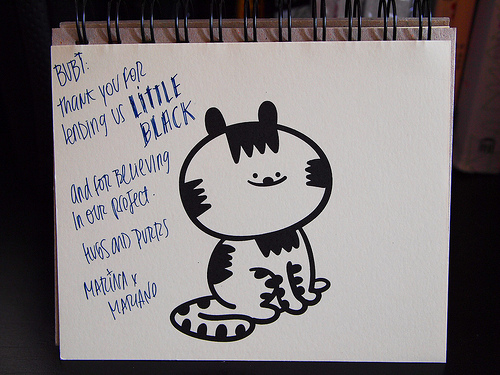 BUBI:
thank you for
lending us LITTLE
BLACK
and for Believing
in our project.
Hugs and Purrs
MARINA &
MARIANO